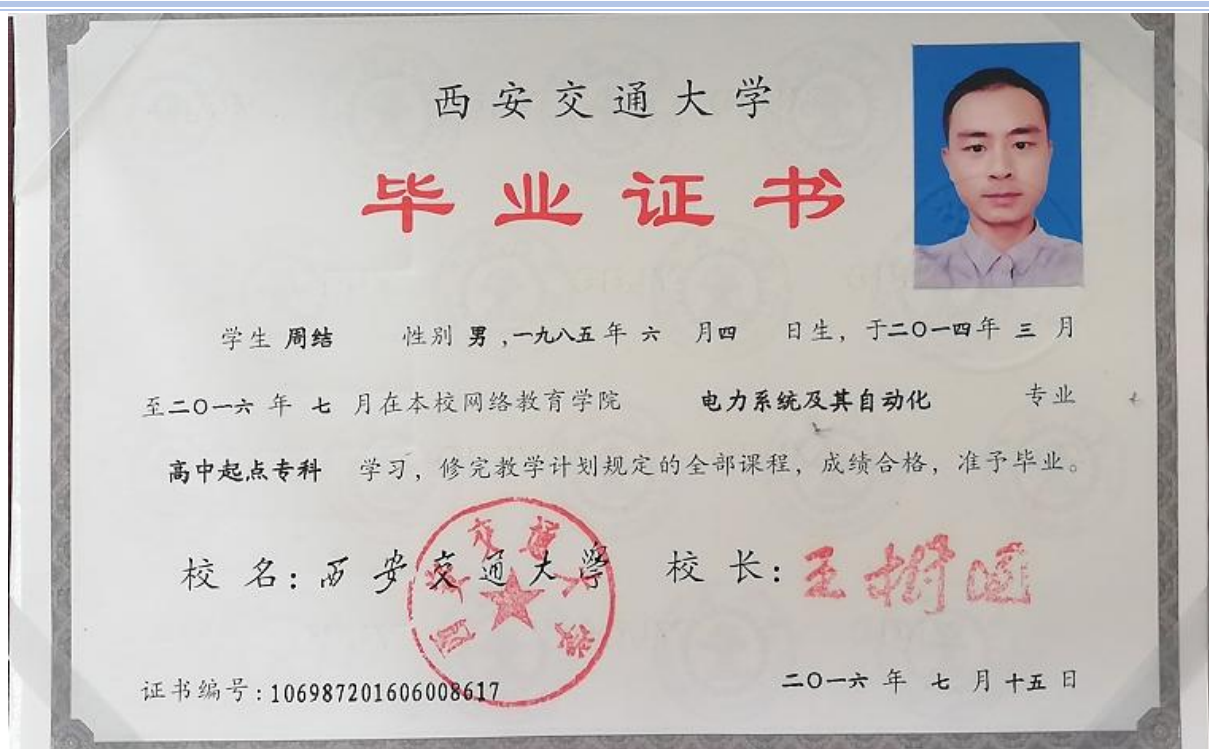 西安交通大学
毕业证书
学生 周结 性别 男,一九八五年 六 月四 日生, 于二〇一四年 三 月
至二〇一六 年 七 月在本校网络教育学院 电力系统及其自动化 专业
高中起点专科 学习, 修完教学计划规定的全部课程, 成绩合格, 准予毕业。
校 名: 西安交通大学 校 长: 王树国
西安交通大学
证书编号:106987201606008617 二〇一六 年 七 月 十五 日